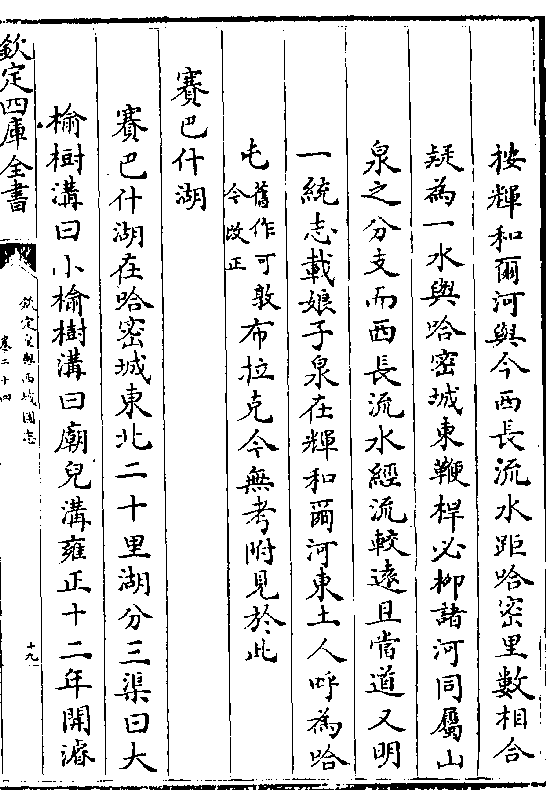 按輝和爾河與今西長流水距哈密里數相合
疑為一水與哈密城東鞭桿必柳諸河同屬山
泉之分支而西長流水經流較遠且當道又明
一統志載娘子泉在輝和爾河東土人呼為哈
屯舊作可敦今改正布拉克今無考附見於此
賽巴什湖
賽巴什湖在哈密城東北二十里湖分三渠曰大
榆樹溝曰小榆樹溝曰廟兒溝雍正十二年開濬
欽定四庫全書
欽定皇輿西域圖志
卷二十四
十九